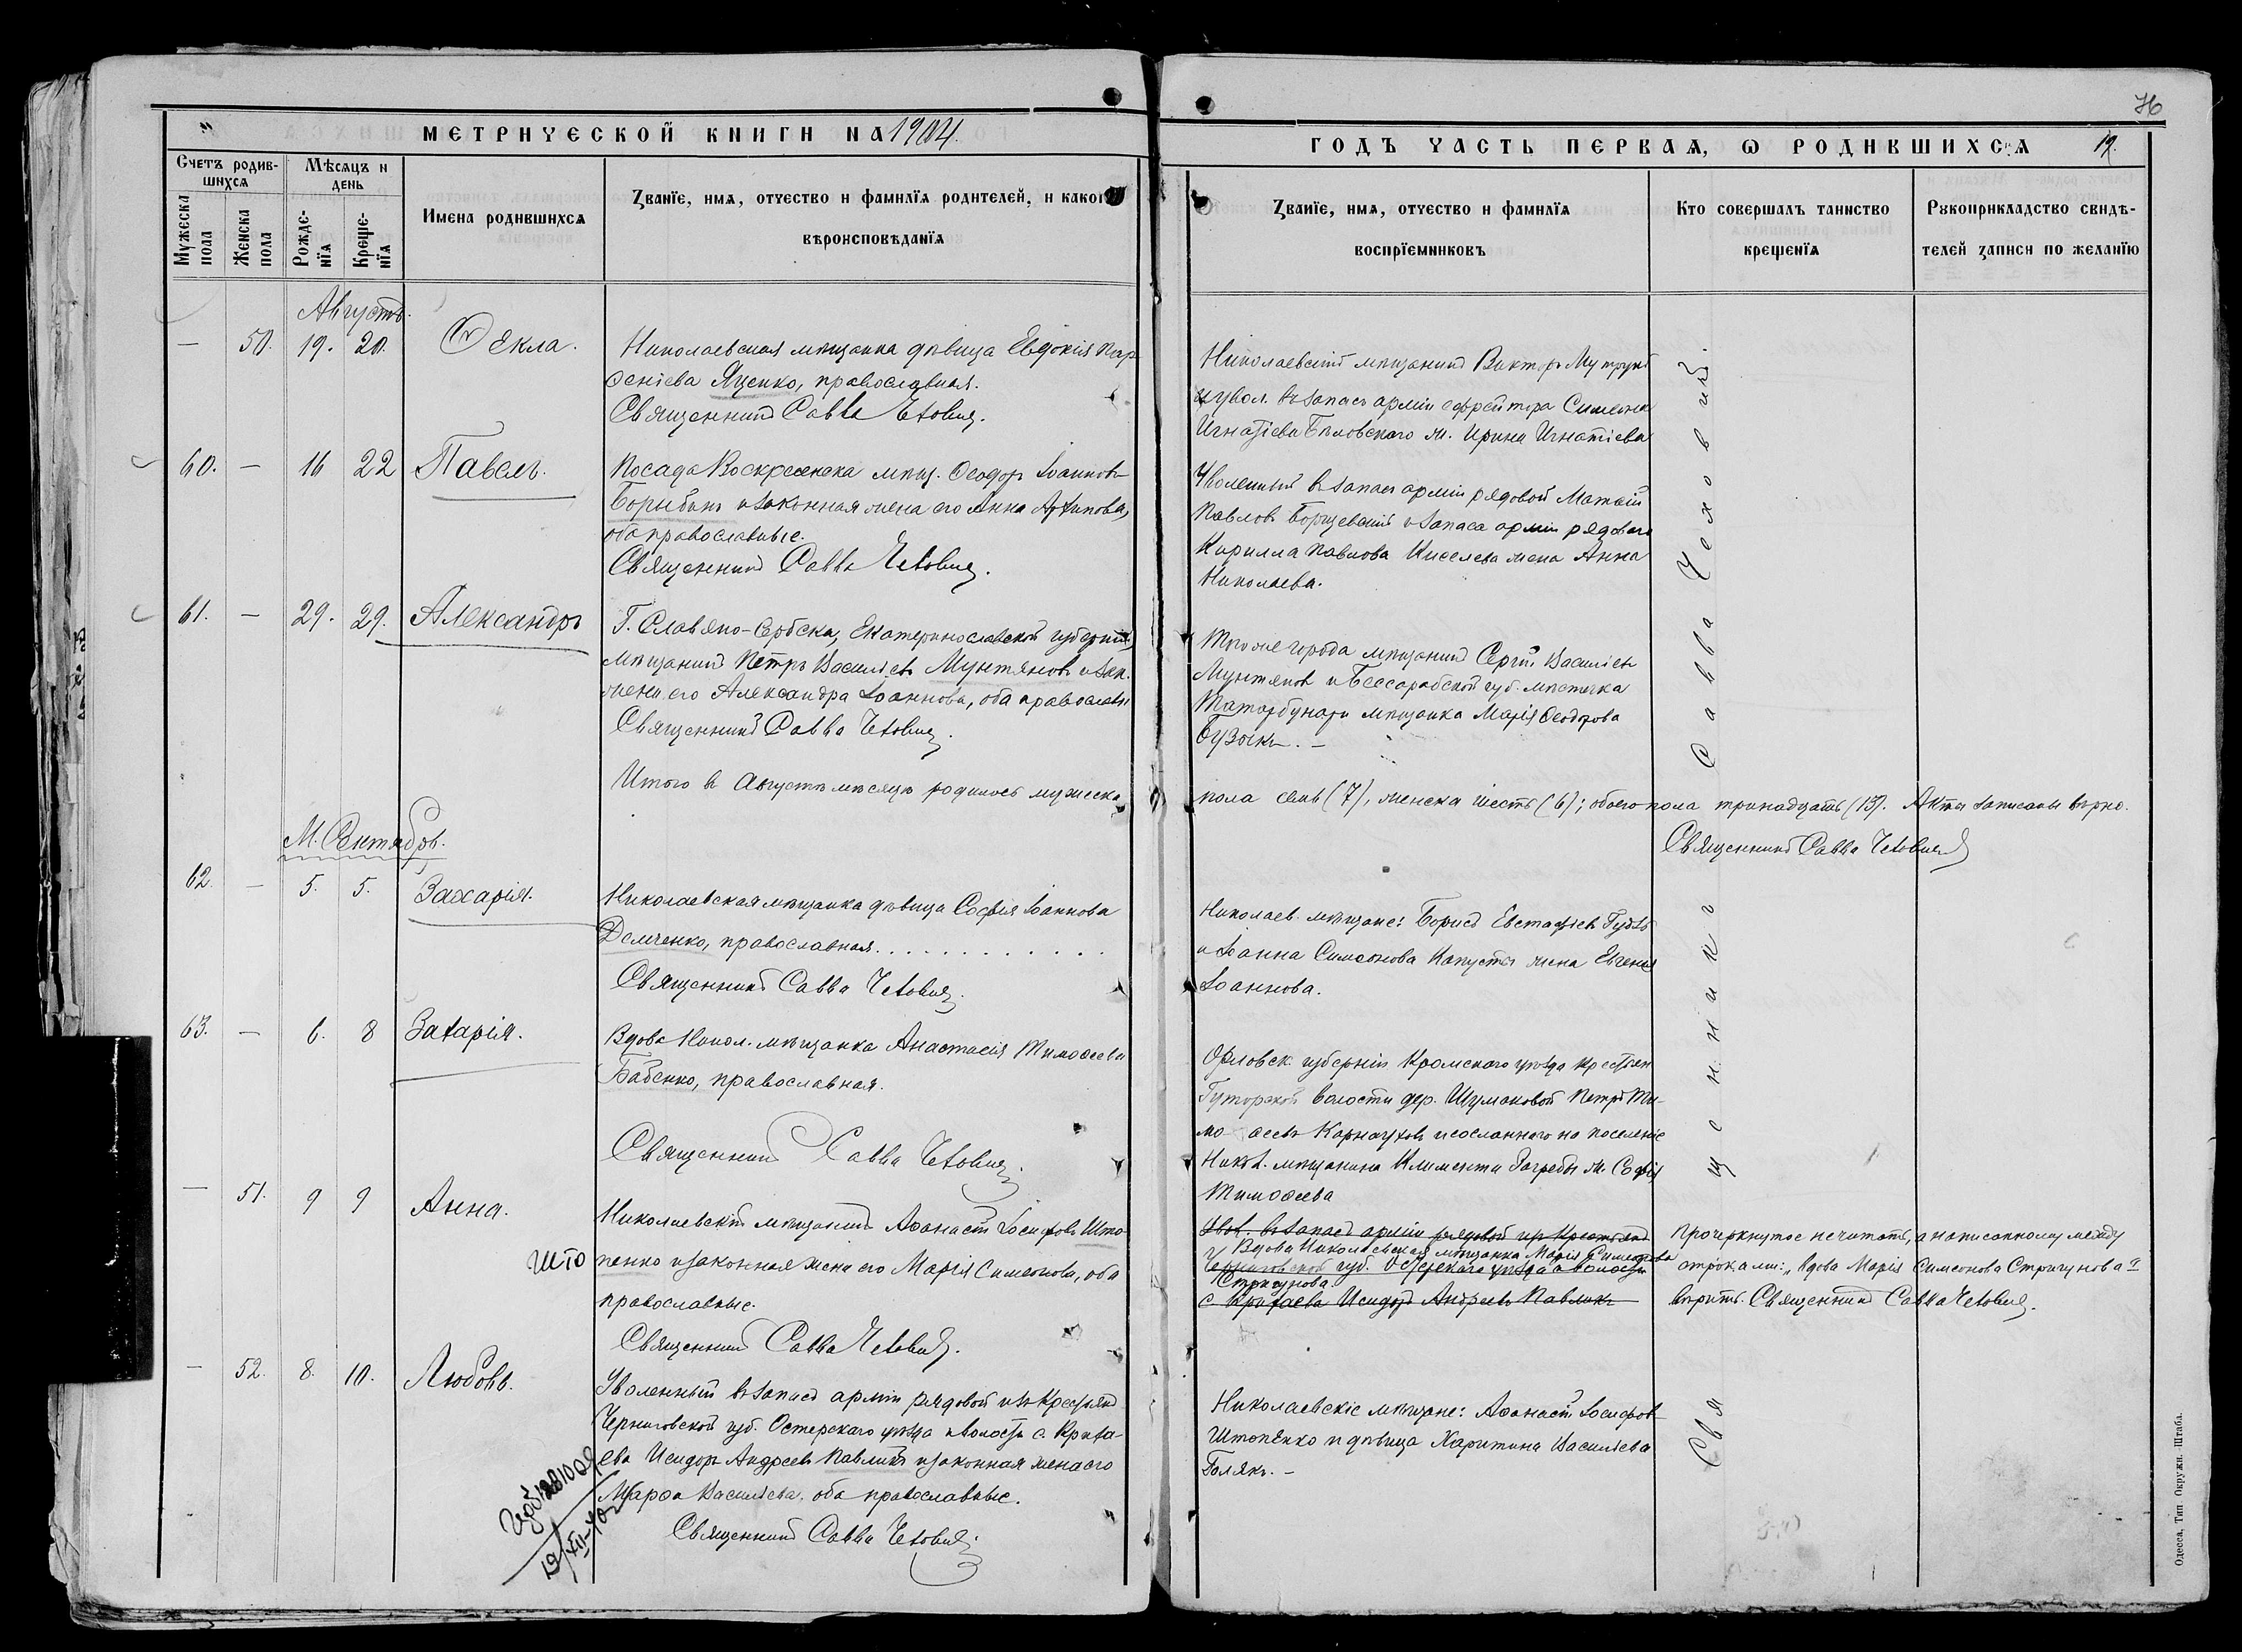 МЕТРИЧЕСКОЙ КНИГИ НА 1904.
Счетъ родив-
шихся
Мѣсяцъ и
день
Мужеска
пола
Женска
пола
Рожде-
нїя
Креще-
нїя
Имена родившихся
Званїе, имя, отчество и фамилїя родителей, и какого
вѣроисповѣданїя
Августъ.
— 50. 19. 20. Ѳекла.
Николаевская мѣщанка дѣвица Евдокія Пар-
ѳеніева Яценко, православная.
Священникъ Савва Чеховичъ.
60. — 16 22 Павелъ.
Посада Воскресенска мѣщ. Ѳеодоръ Іоанновъ
и законная жена его Анна Архипова,
оба православные.
Священникъ Савва Чеховичъ.
61. — 29. 29. Александръ
Г. Славяно-Сербска, Екатеринославской губерніи,
мѣщанинъ Петръ Василіевъ Мунтяновъ и зак.
жена его Александра Іоаннова, оба православн.
Священникъ Савва Чеховичъ.
Итого въ Августѣ мѣсяцѣ родилось мужеска
М. Сентябрь.
62. — 5. 5. Захарія.
Николаевская мѣщанка дѣвица Софія Іоаннова
Демченко, православная. . . . . . . . . . . .
Священникъ Савва Чеховичъ.
63. — 6. 8 Захарія.
Вдова Никол. мѣщанка Анастасія Тимоѳеева
Бабенко, православная.
Священникъ Савва Чеховичъ.
— 51. 9 9 Анна.
Николаевскій мѣщанинъ Аѳанасій Іосифовъ Што-
што
пенко и законная жена его Марія Симеонова, оба
православные.
Священникъ Савва Чеховичъ.
— 52. 8. 10. Любовь.
Уволенный въ запасъ арміи рядовой изъ крестьянъ
Черниговской губ. Остерскаго уѣзда и волости с. Криха-
ева Исидоръ Андреевъ Павликъ и законная жена его
Марѳа Василіева, оба православные.
Священникъ Савва Чеховичъ.
76
ГОДЪ ЧАСТЬ ПЕРВАЯ, Ѡ РОДИВШИХСЯ 19.
Званїе, имя, отчество и фамилїя
воспрїемниковъ
Кто совершалъ таинство
крещенїя
Рукоприкладство свидѣ-
телей записи по желанїю
Николаевскій мѣщанинъ Викторъ
и увол. въ запасъ арміи ефрейтора Симеона
Игнатіева Бѣловскаго ж. Ирина Игнатіева
Уволенный въ запасъ арміи рядовой Матѳій
Павловъ Борщевскій и запаса арміи рядового
Кирилла Павлова Киселева жена Анна
Николаева.
Того же города мѣщанинъ Сергій Василіевъ
Мунтяновъ и Бессарабской губ. мѣстечка
Татарбунары мѣщанка Марія Ѳеодорова
Бузыкъ. —
пола семь (7), женска шесть (6); обоего пола тринадцать (13). Акты записаны вѣрно.
Священникъ Савва Чеховичъ
Николаев. мѣщане: Борисъ Евстафіевъ
и Іоанна Симеонова Капусты жена Евгенія
Іоаннова.
Орловск. губерніи Кромского уѣзда крестьян.
Гуторской волости дер. Шумаковой Петръ Ти-
мо ѳеевъ Карнауховъ и сосланнаго на поселеніе
Никол. мѣщанина Климента Загребы ж. Софія
Тимоѳеева
Увол. въ запасъ арміи рядовой изъ крестьянъ
Вдова Николаевская мѣщанка Марія Симеонова
Черниговской губ. Остерскаго уѣзда и волости
Стригунова
с. Крихаева Исидоръ Андреевъ Павликъ
Прочеркнутое не читать, а написанному между
строками: „вдова Марія Симеонова Стригунова"
вѣрить. Священникъ Савва Чеховичъ.
Николаевскіе мѣщане: Аѳанасій Іосифовъ
Штопенко и дѣвица Харитина Василіева
Голякъ. —
Священникъ Савва Чеховичъ.
Одесса, Тип. Окружн. Штаба.